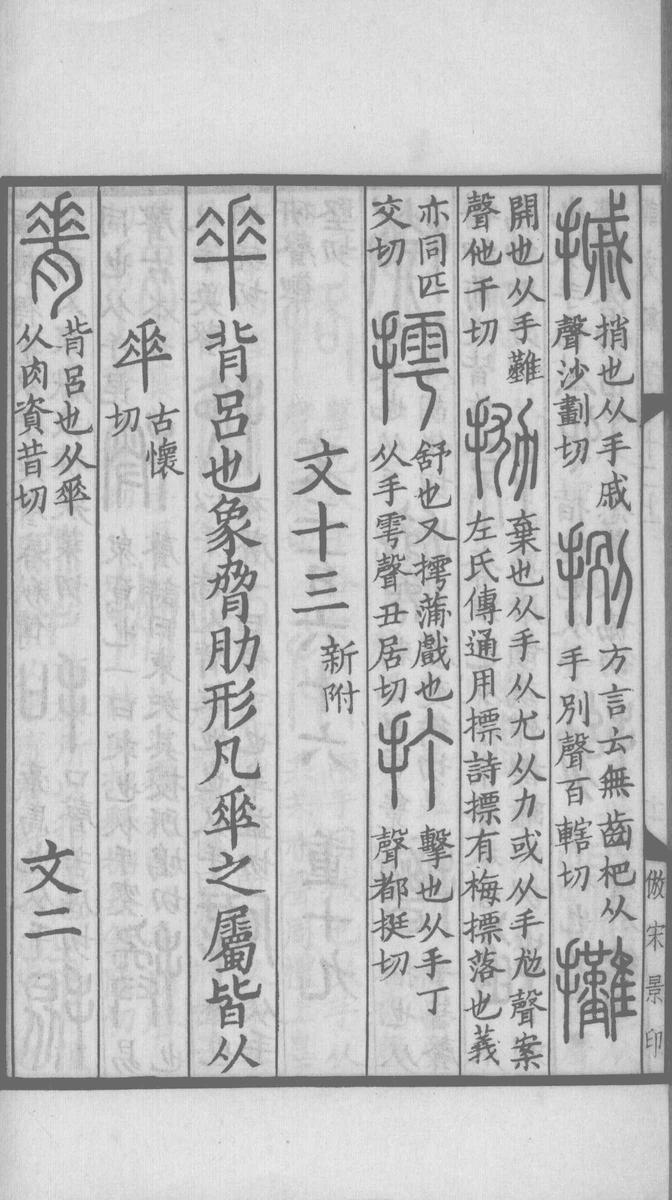 摵捎也从手戚聲沙劃切 捌方言云無齒杷从手別聲百轄切 攤
開也从手難聲他干切 抛棄也从手从尤从力或从手尥聲案左氏傳通用摽詩摽有梅摽落也義
亦同匹交切 摴舒也又摴蒲戲也从手雩聲丑居切 打擊也从手丁聲都挺切
文十三 新附
𠦬背呂也象脅肋形凡𠦬之屬皆从
𠦬古懷切
脊背呂也从𠦬从肉資昔切 文二
倣宋景印